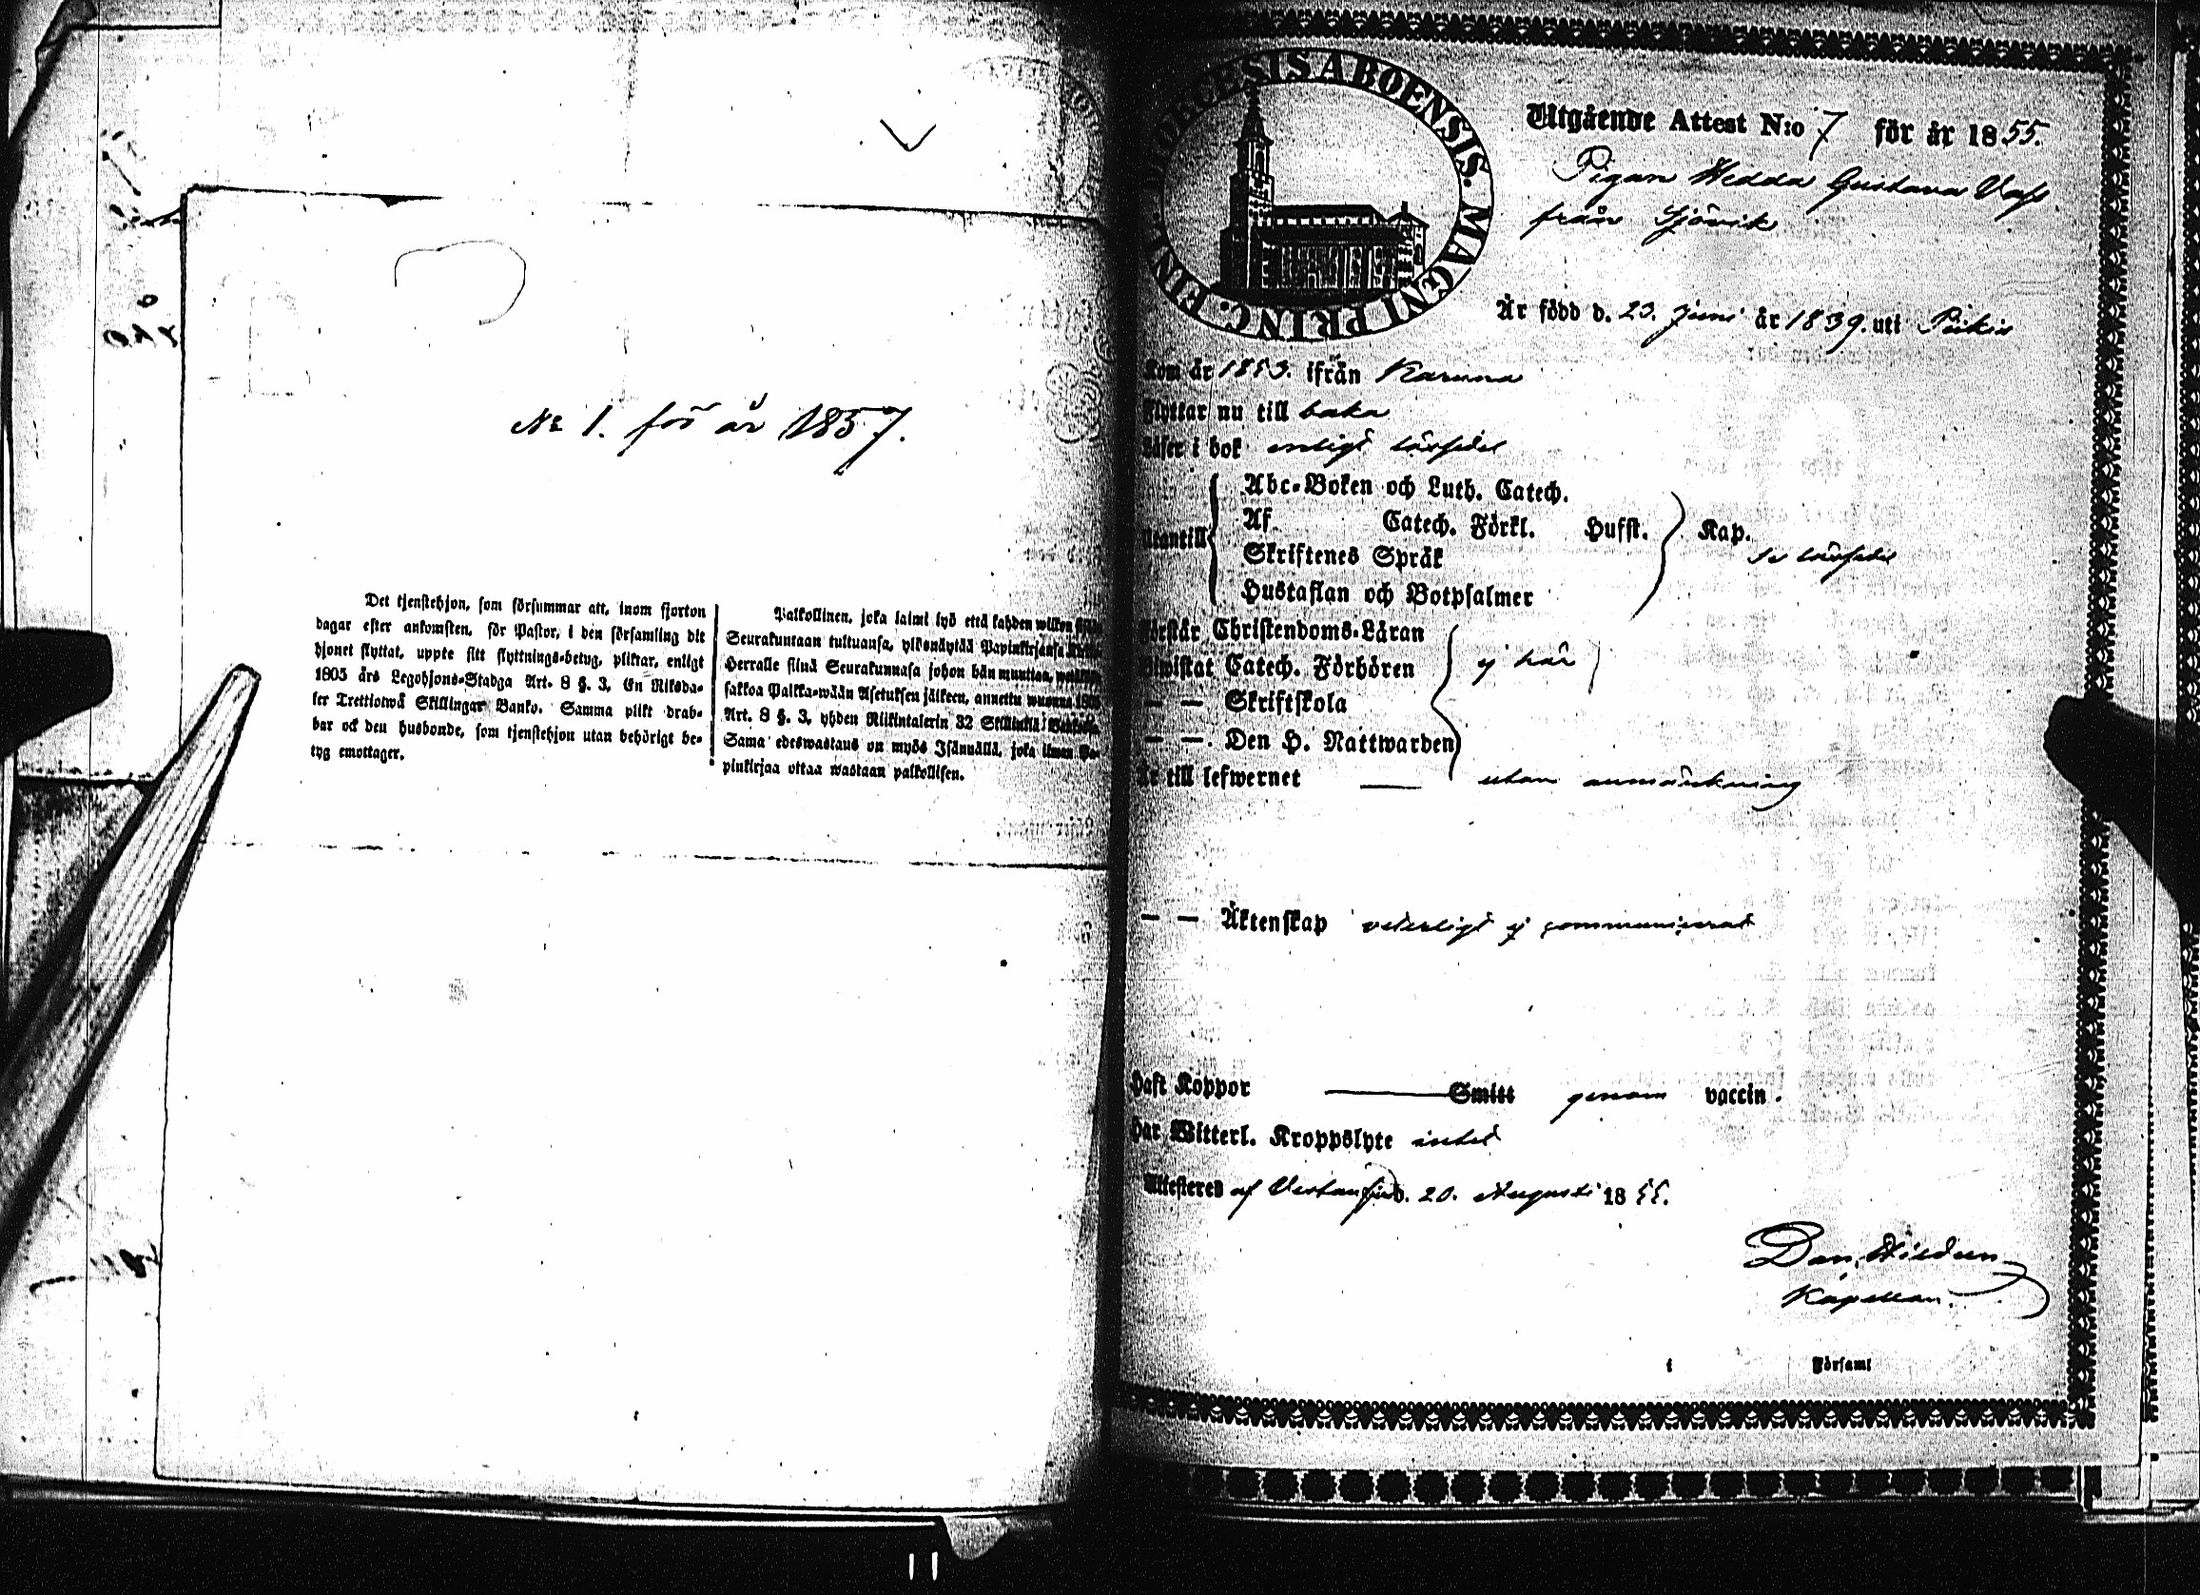 № 1. för år 1857.
Det tjenstehjon, som försummar att, inom fjorton
dagar efter ankomsten, för Pastor, i den församling dit
hjonet flyttat, uppte sitt flyttnings-betyg, pliktar, enligt
1805 års Legohjons-Stadga Art. 8 §. 3, En Riksda-
ler Trettiotwå Skillingar Banko. Samma plikt drab-
bar ock den husbonde, som tjenstehjon utan behörigt be-
tyg emottager.
Palkollinen, joka laimi lyö että kahden wiikon
Seurakuntaan tultuansa, ylösnäytää Papinkirjansa
Herralle siinä Seurakunnasa johon hän muuttaa,
sakkoa Palkka-wään Asetuksen jälkeen, annettu wuonna 1805
Art. 8 §. 3, yhden Riikintalerin 32 Skillinkiä
Sama edeswastaus on myös Isännällä, joka ilman Pa-
pinkirjaa ottaa wastaan palkollisen.
DIOECESIS ABOENSIS. MAGNI PRINC. FINL.
Utgående Attest N:o 7 för år 1855.
Pigan Hedda Gustava
från Sjövik
Är född d. 23. Juni år 1839. uti Pikis
Kom år 1853. ifrån Karuna
Flyttar nu till baka
Läser i bok enligt
Utantill
Abc-Boken och Luth. Catech.
Af Catech. Förkl. Hufst. Kap.
Skriftenes Språk
Hustaflan och Botpsalmer
Förstår Christendoms-Läran
Biwistat Catech. Förhören ej här
— — Skriftskola
— — Den H. Nattwarden
Är till lefwernet — utan anmärkning
— — Äktenskap veterligt ej communicerad
Haft Koppor — Smitt genom vaccin.
Har Witterl. Kroppslyte intet
Attesteres af Vestanfjerd d. 20. Augusti 1855.
Dan.
Kapellan.
i Församl
11